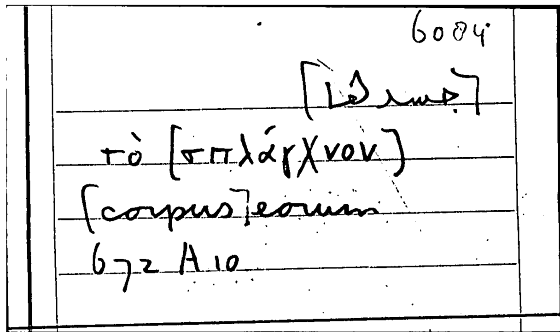 6084
τὸ [σπλάγχνον]
[corpus]eorum
672 A 10